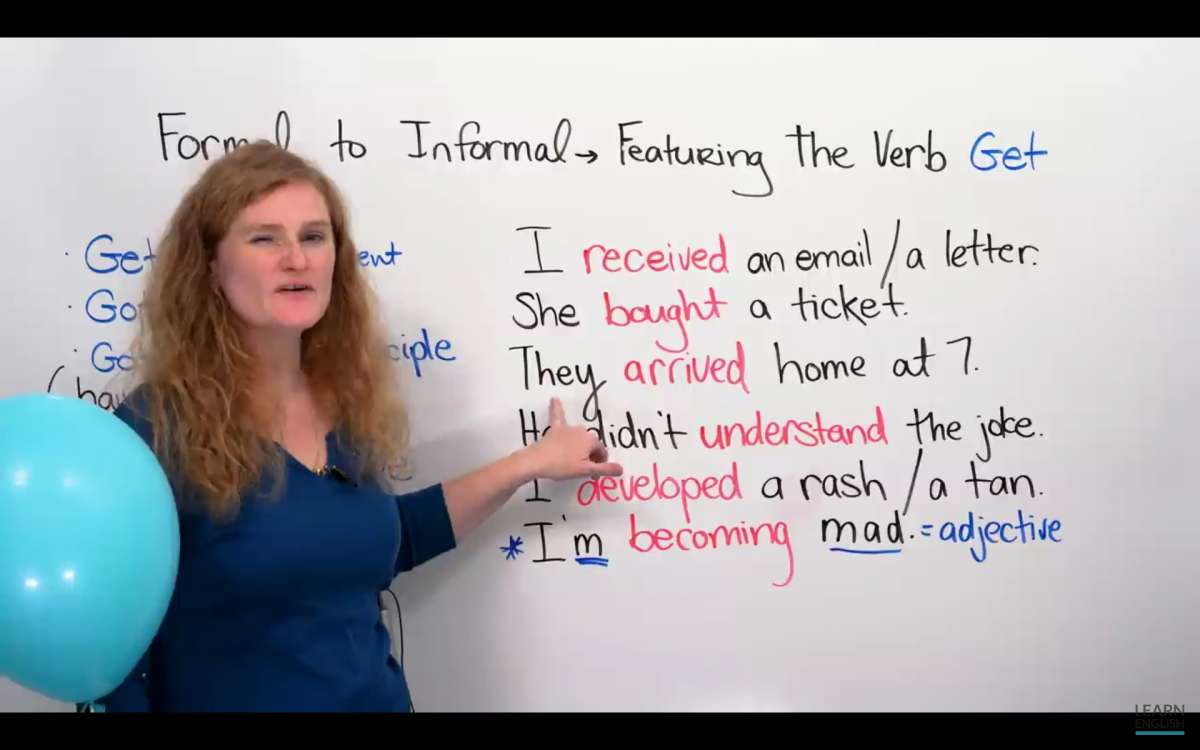 Formal to Informal → Featuring the Verb Get
· Get
· Go
· Go ciple
(hav
I received an email / a letter.
She bought a ticket.
They arrived home at 7.
He didn't understand the joke.
I developed a rash / a tan.
* I'm becoming mad. = adjective
LEARN
ENGLISH